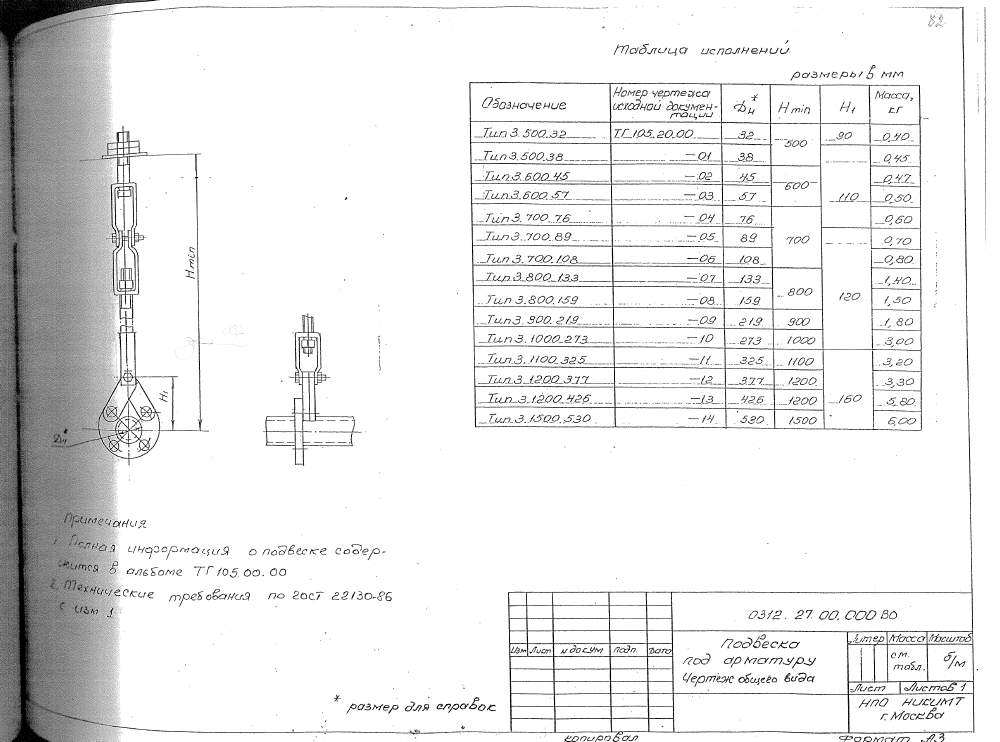 82
Таблица исполнений
размеры в мм
Обозначение Номер чертежа исходной документации Dн* Hmin H1 Масса, кг
Тип 3.500.32 ТГ105.20.00 32 500 90 0,40
Тип 3.500.38 —01 38 0,45
Тип 3.600.45 —02 45 600 110 0,47
Тип 3.600.57 —03 57 0,50
Тип 3.700.76 —04 76 700 0,60
Тип 3.700.89 —05 89 120 0,70
Тип 3.700.108 —06 108 0,80
Тип 3.800.133 —07 133 800 1,40
Тип 3.800.159 —08 159 1,50
Тип 3.900.219 —09 219 900 1,80
Тип 3.1000.273 —10 273 1000 3,00
Тип 3.1100.325 —11 325 1100 160 3,20
Тип 3.1200.377 —12 377 1200 3,30
Тип 3.1200.426 —13 426 1200 5,80
Тип 3.1500.530 —14 530 1500 6,00
Hmin
H1
Dн*
Примечания
1. Полная информация о подвеске содер-
жится в альбоме ТГ105.00.00
2. Технические требования по гост 22130-86
с изм 1
* размер для справок
0312.27.00.000 ВО
Изм Лист N докум Подп. Дата
Подвеска
под арматуру
Чертеж общего вида
Литер Масса Масштаб
см. табл. б/м
Лист Листов 1
НПО НИКИМТ
г. Москва
копировал Формат А3